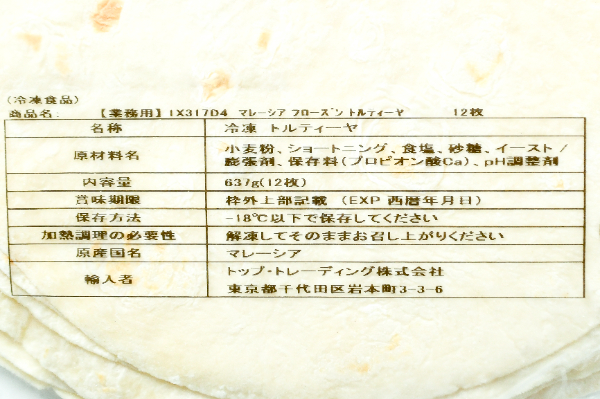 (冷凍食品)
商品名: 【業務用】IX317D4 マレーシア フローズン トルティーヤ 12枚
名称 冷凍 トルティーヤ
原材料名 小麦粉、ショートニング、食塩、砂糖、イースト/
膨張剤、保存料(プロピオン酸Ca)、pH調整剤
内容量 637g(12枚)
賞味期限 枠外上部記載 (EXP 西暦年月日)
保存方法 -18℃以下で保存してください
加熱調理の必要性 解凍してそのままお召し上がりください
原産国名 マレーシア
輸入者 トップ・トレーディング株式会社
東京都千代田区岩本町3-3-6